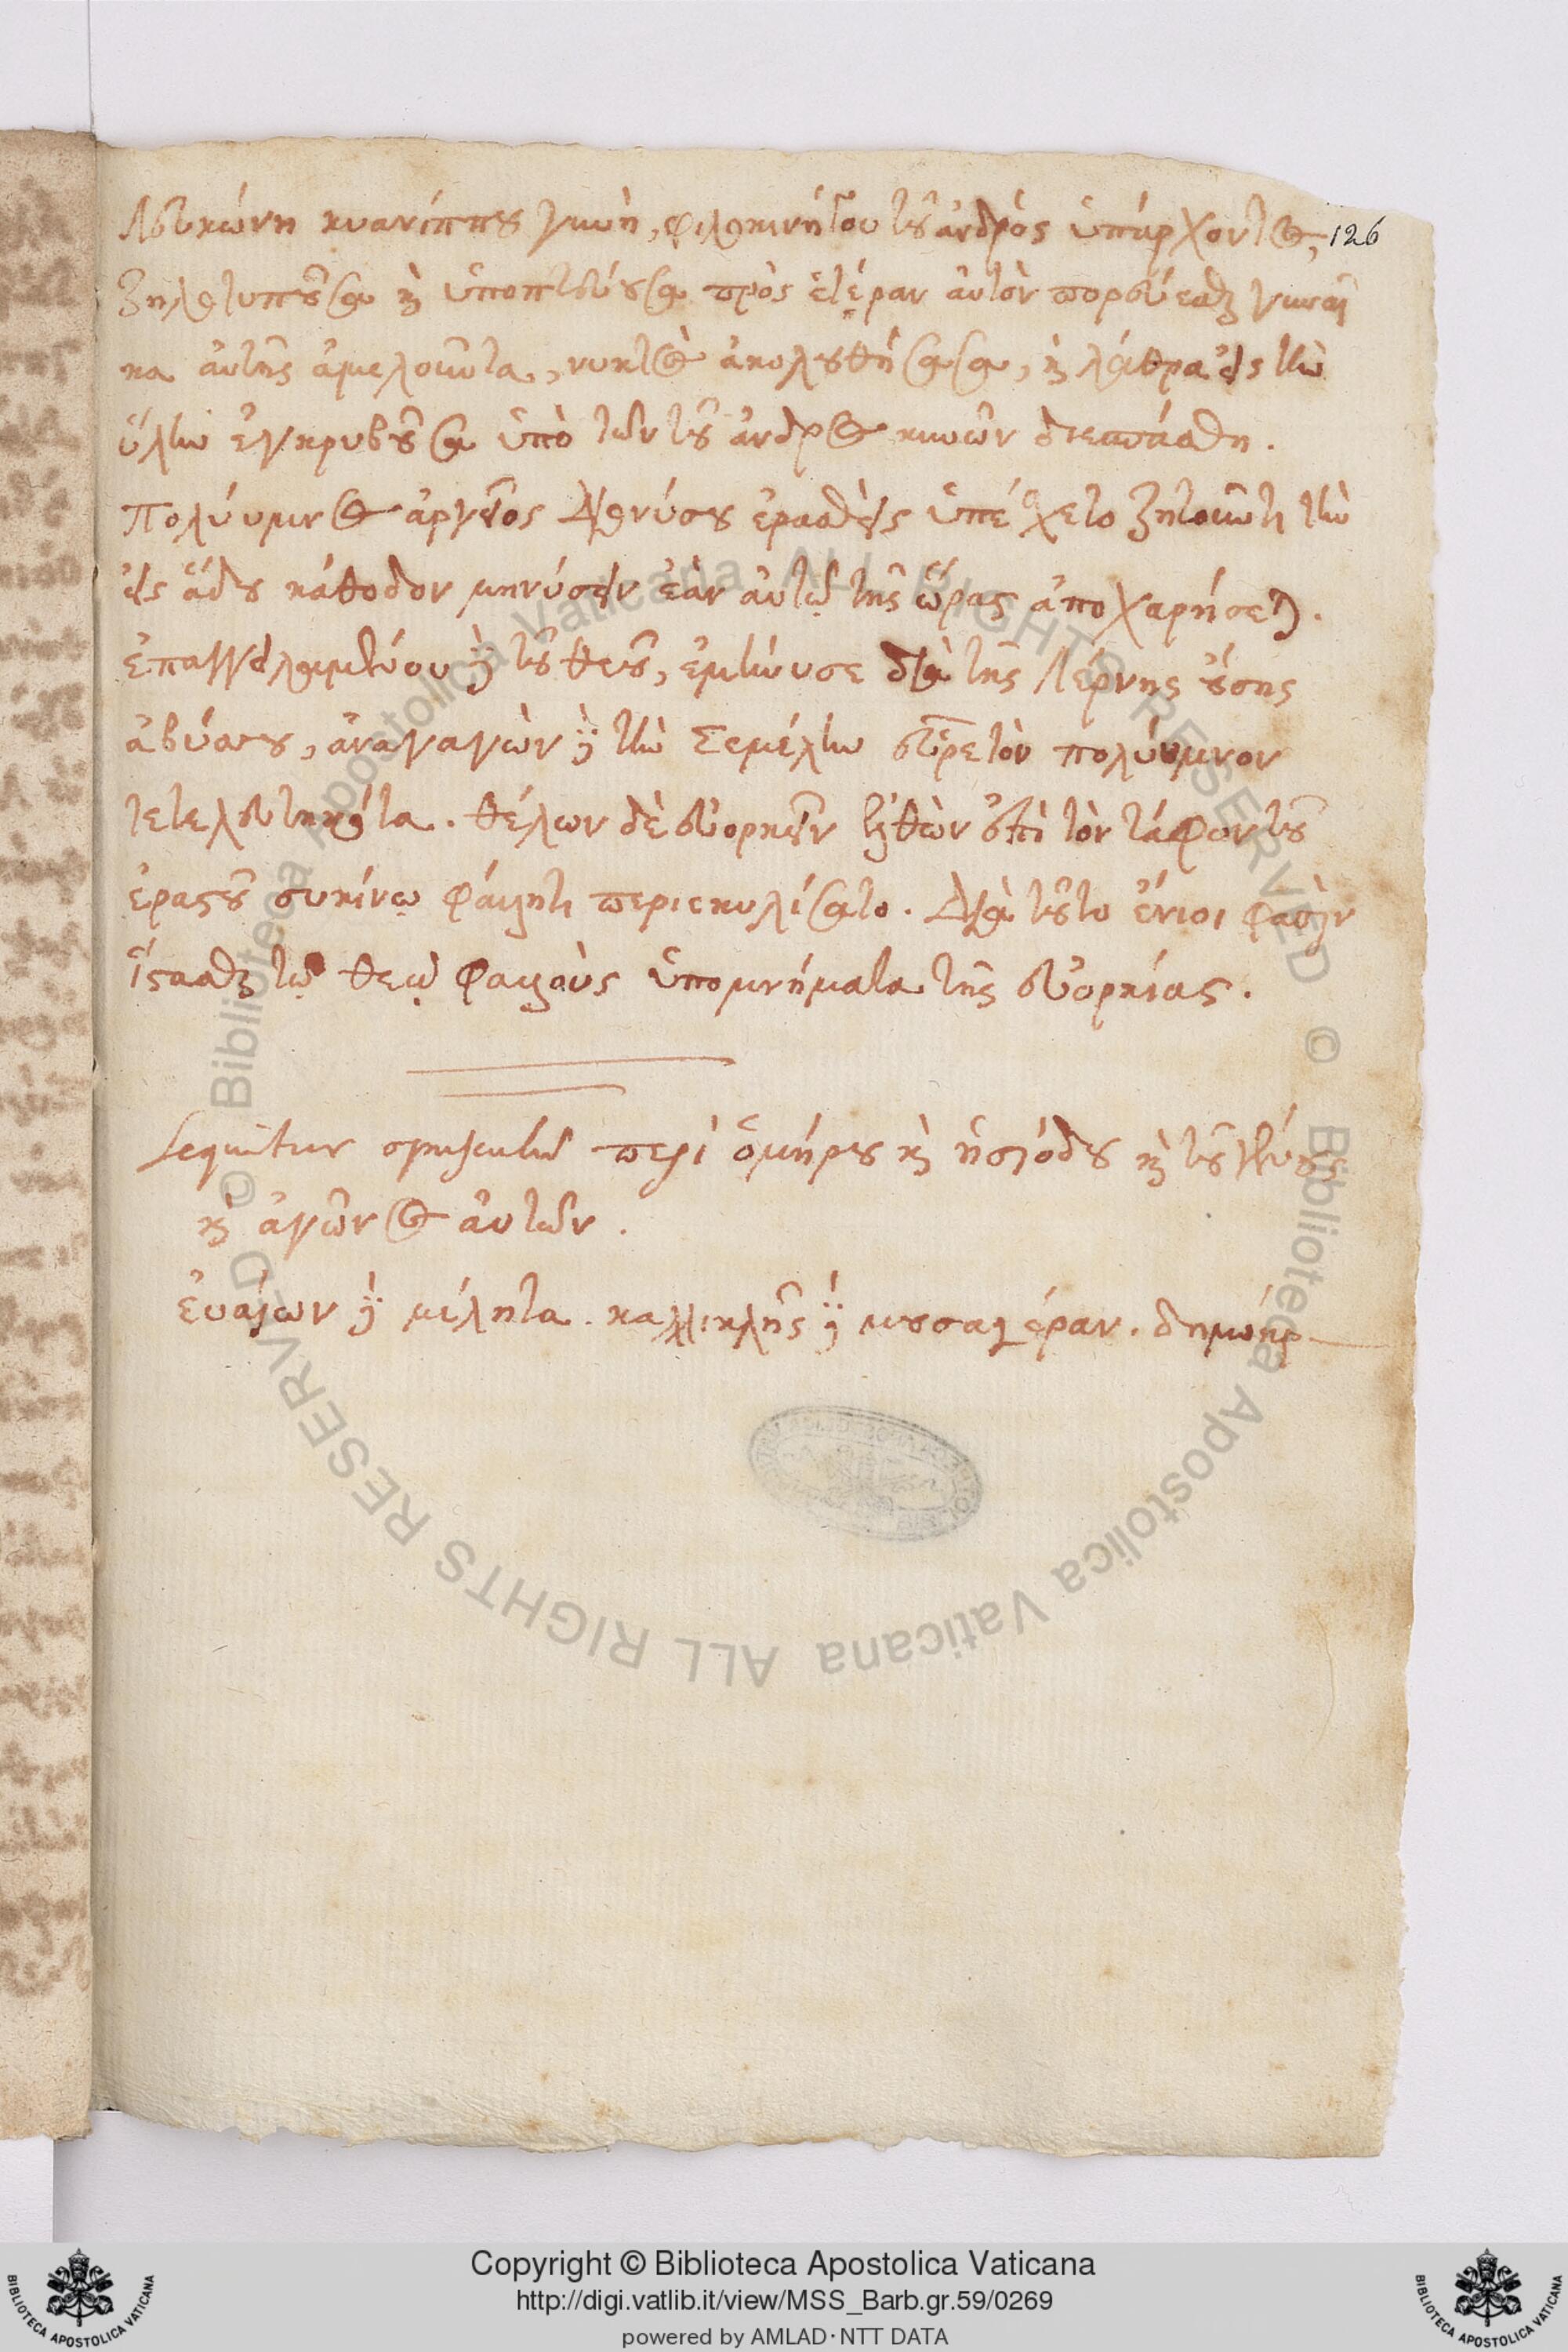 Λευκώνη κυανίππου γυνὴ, φιλοκινήγου τοῦ ἀνδρὸς ὑπάρχοντος, 126
ζηλοτυποῦσα καὶ ὑποπτεύουσα πρὸς ἑτέραν αὐτὸν πορεύεσθαι γυναῖ
κα αὐτῆς ἀμελοῦντα, νυκτὸς ἀκολουθήσασα, καὶ λάθρα εἰς τὴν
ὕλην ἐγκρυβοῦσα ὑπὸ τῶν τοῦ ἀνδρὸς κυνῶν διεσπάσθη.
Πολύυμνος ἀργεῖος Διονύσου ἐρασθεὶς ὑπέσχετο ζητοῦντι τὴν
εἰς ἅδου κάθοδον μηνύσειν ἐὰν αὐτῷ τῆς ὥρας ἀποχαρήσεται.
ἐπαγγειλαμένου δὲ τοῦ θεοῦ, ἐμήνυσε διὰ τῆς Λέρνης οὔσης
ἀβύσσου, ἀναγαγὼν δὲ τὴν Σεμέλην εὗρε τὸν πολύυμνον
τετελευτηκότα. θέλων δὲ εὐορκεῖν ἐλθὼν ἐπὶ τὸν τάφον τοῦ
ἐραστοῦ συκίνῳ φάλητι περιεκυλίσατο. Διὰ τοῦτο ἔνιοι φασὶν
ἵστασθαι τῷ θεῷ φαλλοὺς ὑπομνήματα τῆς εὐορκίας.
Sequitur opusculum περὶ ὁμήρου καὶ ἡσιόδου καὶ τοῦ γένους
καὶ ἀγῶνος αὐτῶν.
ἐυαίων δὲ μέλητα. καλλικλῆς δὲ
© Biblioteca Apostolica Vaticana ALL RIGHTS RESERVED © Biblioteca Apostolica Vaticana ALL RIGHTS RESERVED
Copyright © Biblioteca Apostolica Vaticana
http://digi.vatlib.it/view/MSS_Barb.gr.59/0269
powered by AMLAD·NTT DATA
BIBLIOTECA APOSTOLICA VATICANA
BIBLIOTECA APOSTOLICA VATICANA